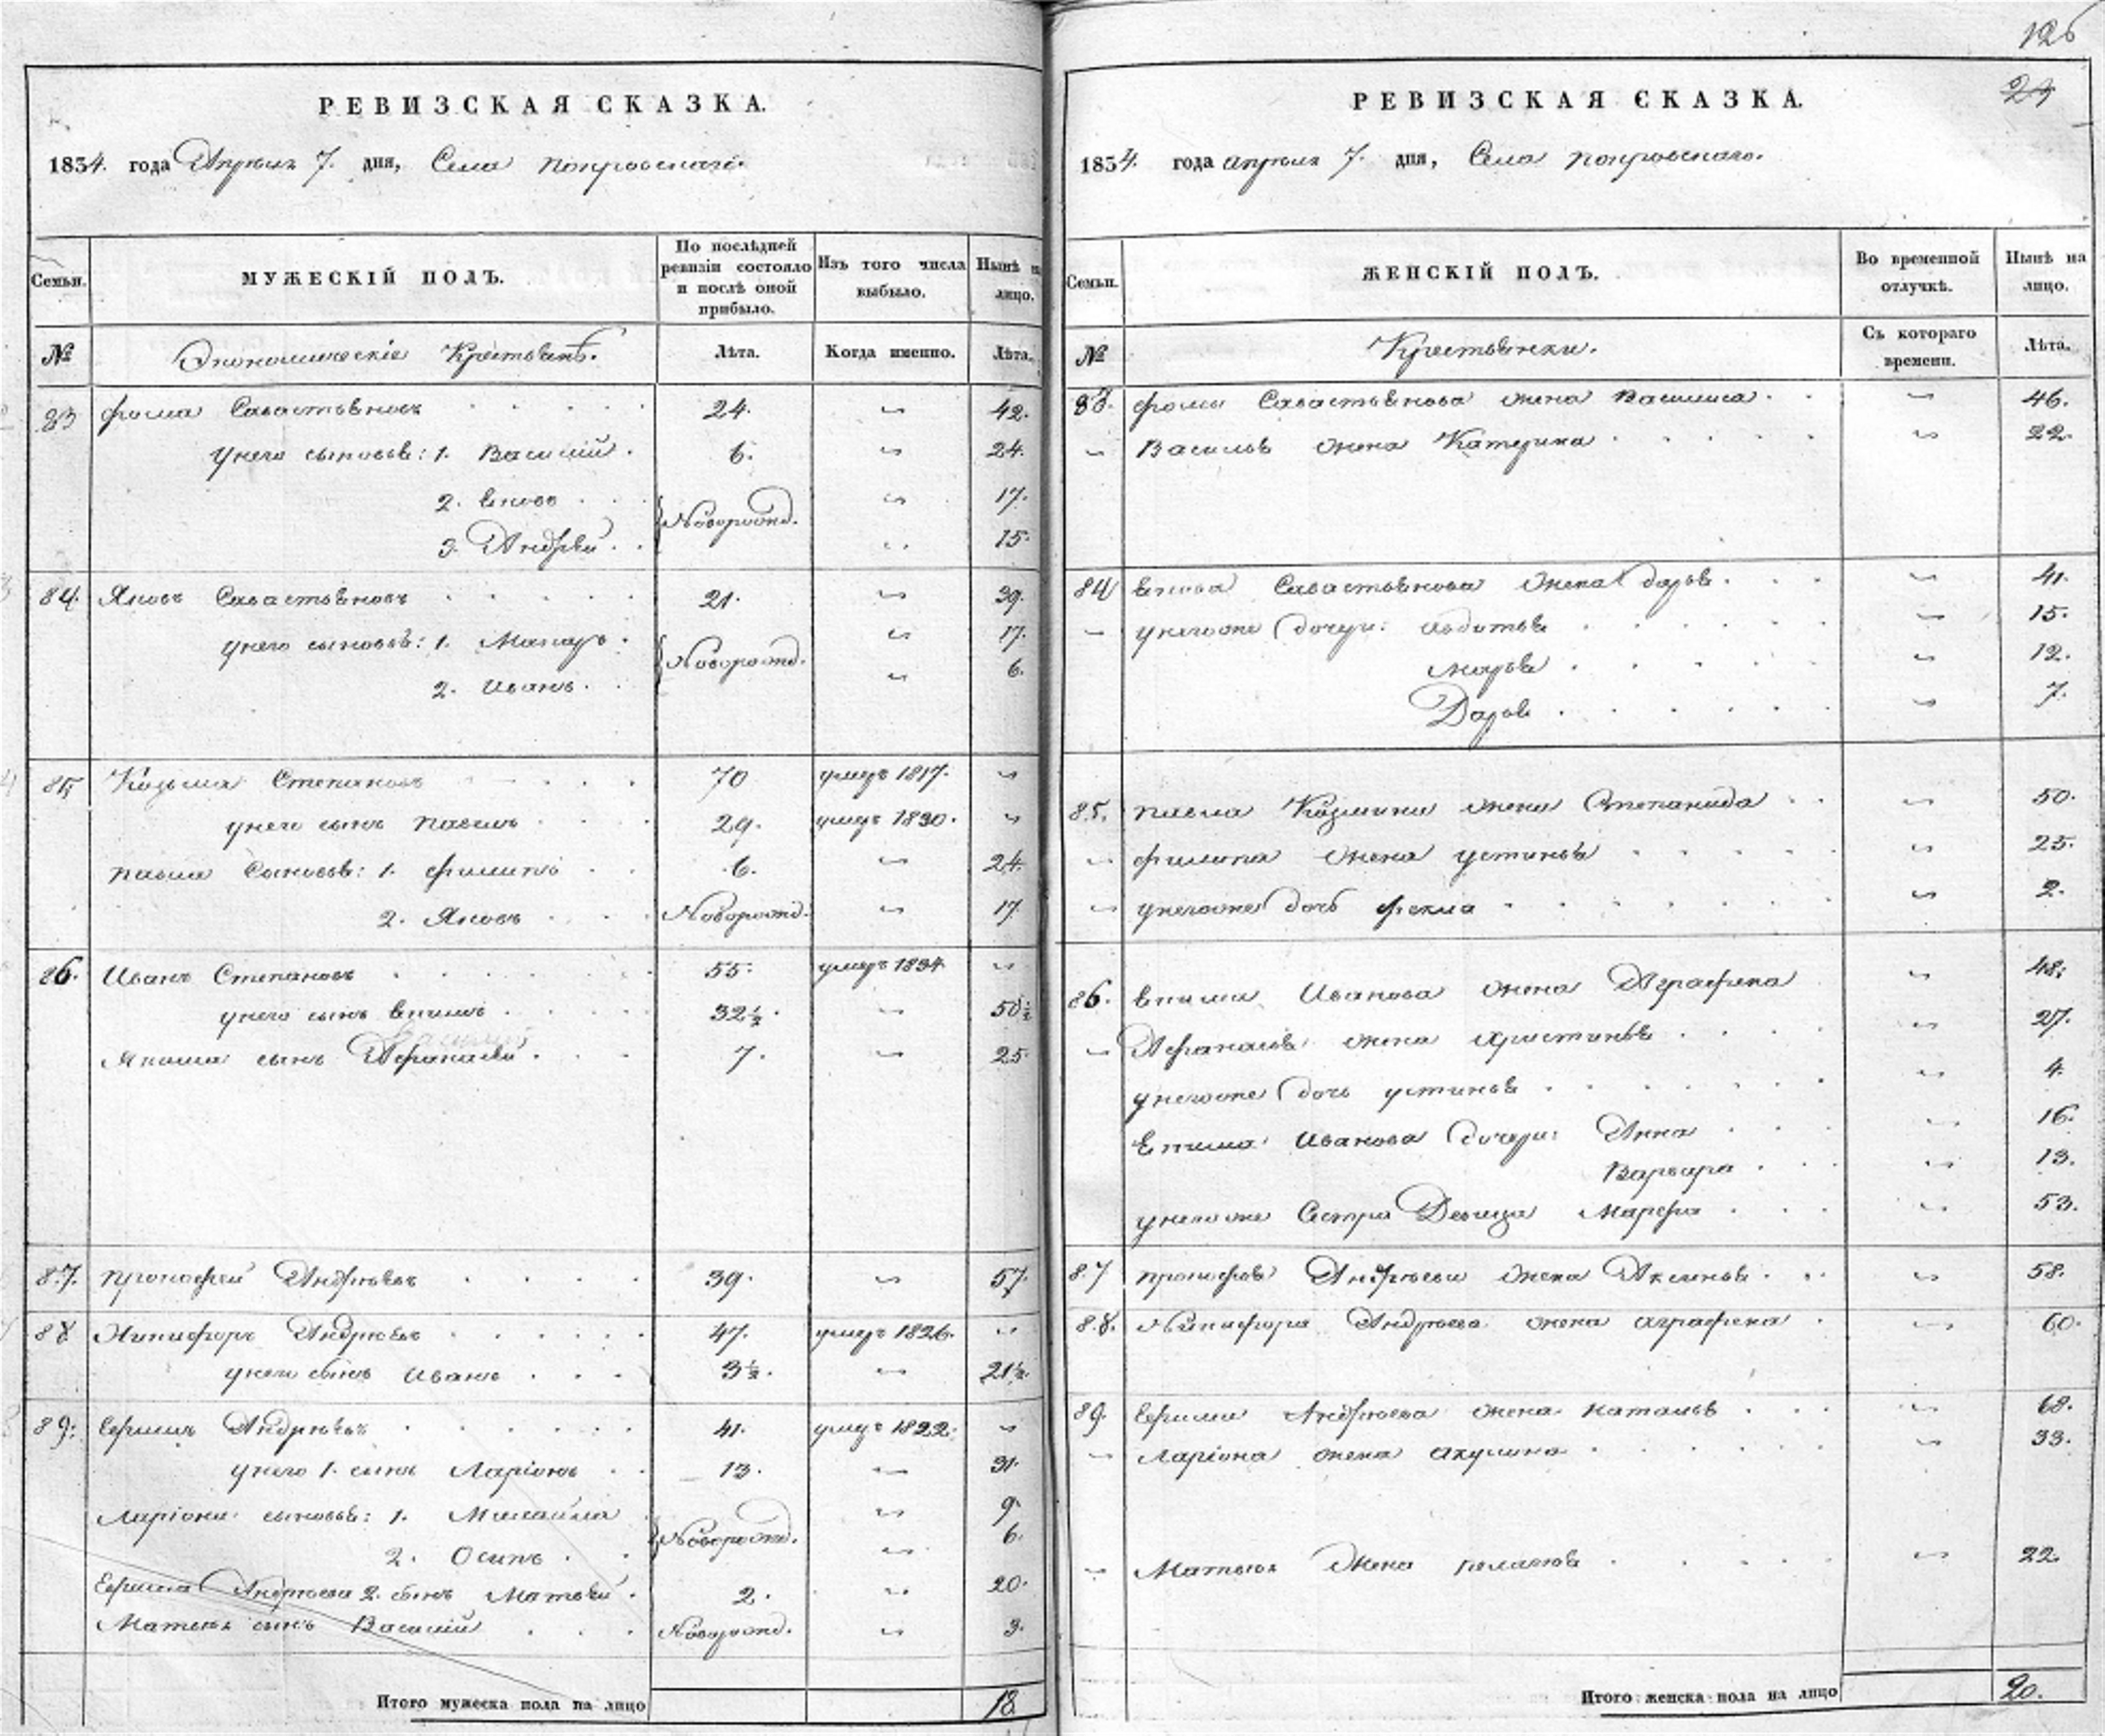 РЕВИЗСКАЯ СКАЗКА.
1834. года Апреля 7. дня, Села Покровскаго.
Семьи.
МУЖЕСКІЙ ПОЛЪ.
По послѣдней ревизіи состояло и послѣ оной прибыло.
Изъ того числа выбыло.
Нынѣ на лицо.
№ Экономическіе Крестьянѣ. Лѣта. Когда именно. Лѣта.
83 Фома Савастьяновъ 24. 42.
у него сыновья: 1. Василий 6. 24.
2. Яковъ Новорожд. 17.
3. Андрей 15.
84. Яковъ Савастьяновъ 21. 39.
у него сыновья: 1. Макаръ Новорожд. 17.
2. Иванъ 6.
85 Козьма Степановъ 70 умеръ 1817.
у него сынъ Павелъ 29. умеръ 1830.
Павла Сыновья: 1. Филипъ 6. 24.
2. Яковъ Новорожд. 17
86. Иванъ Степановъ 55. умеръ 1834
у него сынъ 32½. 50½
сынъ Афанасей 7. 25
87. Прокофей Андреевъ 39. 57.
88 Никифоръ Андреевъ 47. умеръ 1826.
у него сынъ Иванъ 3½. 21½.
89. Ефимъ Андреевъ 41. умеръ 1822.
у него 1. сынъ Ларіонъ 13. 31.
Ларіона сыновья: 1. Михайла Новорожд. 9.
2. Осипъ 6.
Ефима Андреева 2. сынъ Матвей 2. 20.
Матвея сынъ Василий Новорожд. 3.
Итого мужеска пола на лицо 18.
126
29
РЕВИЗСКАЯ СКАЗКА.
1834. года апреля 7. дня, Села Покровскаго.
Семьи.
ЖЕНСКІЙ ПОЛЪ.
Во временной отлучкѣ.
Нынѣ на лицо.
№ Крестьянки. Съ котораго времени. Лѣта.
83. Фомы Савастьянова жена Василиса 46.
Василья жена Катерина 22.
84 Якова Савастьянова жена Дарья 41.
у него же дочери: 15.
Марья 12.
Дарья 7.
85. Павла Козмина жена Степанида 50.
Филипа жена Устинья 25.
у него же дочь Фекла 2.
86. Иванова жена Аграфена 48.
Афанасья жена Христинья 27.
у него же дочь Устинья 4.
Иванова дочери: Анна 16.
Варвара 13.
у него же Сестра Девица Марфа 53.
87 Прокофья Андреева жена Аксинья 58.
88. Никифора Андреева жена Аграфена 60.
89. Ефима Андреева жена Наталья 68.
Ларіона жена Акулина 33.
Матвея жена Пелагея 22.
Итого женска пола на лицо 20.